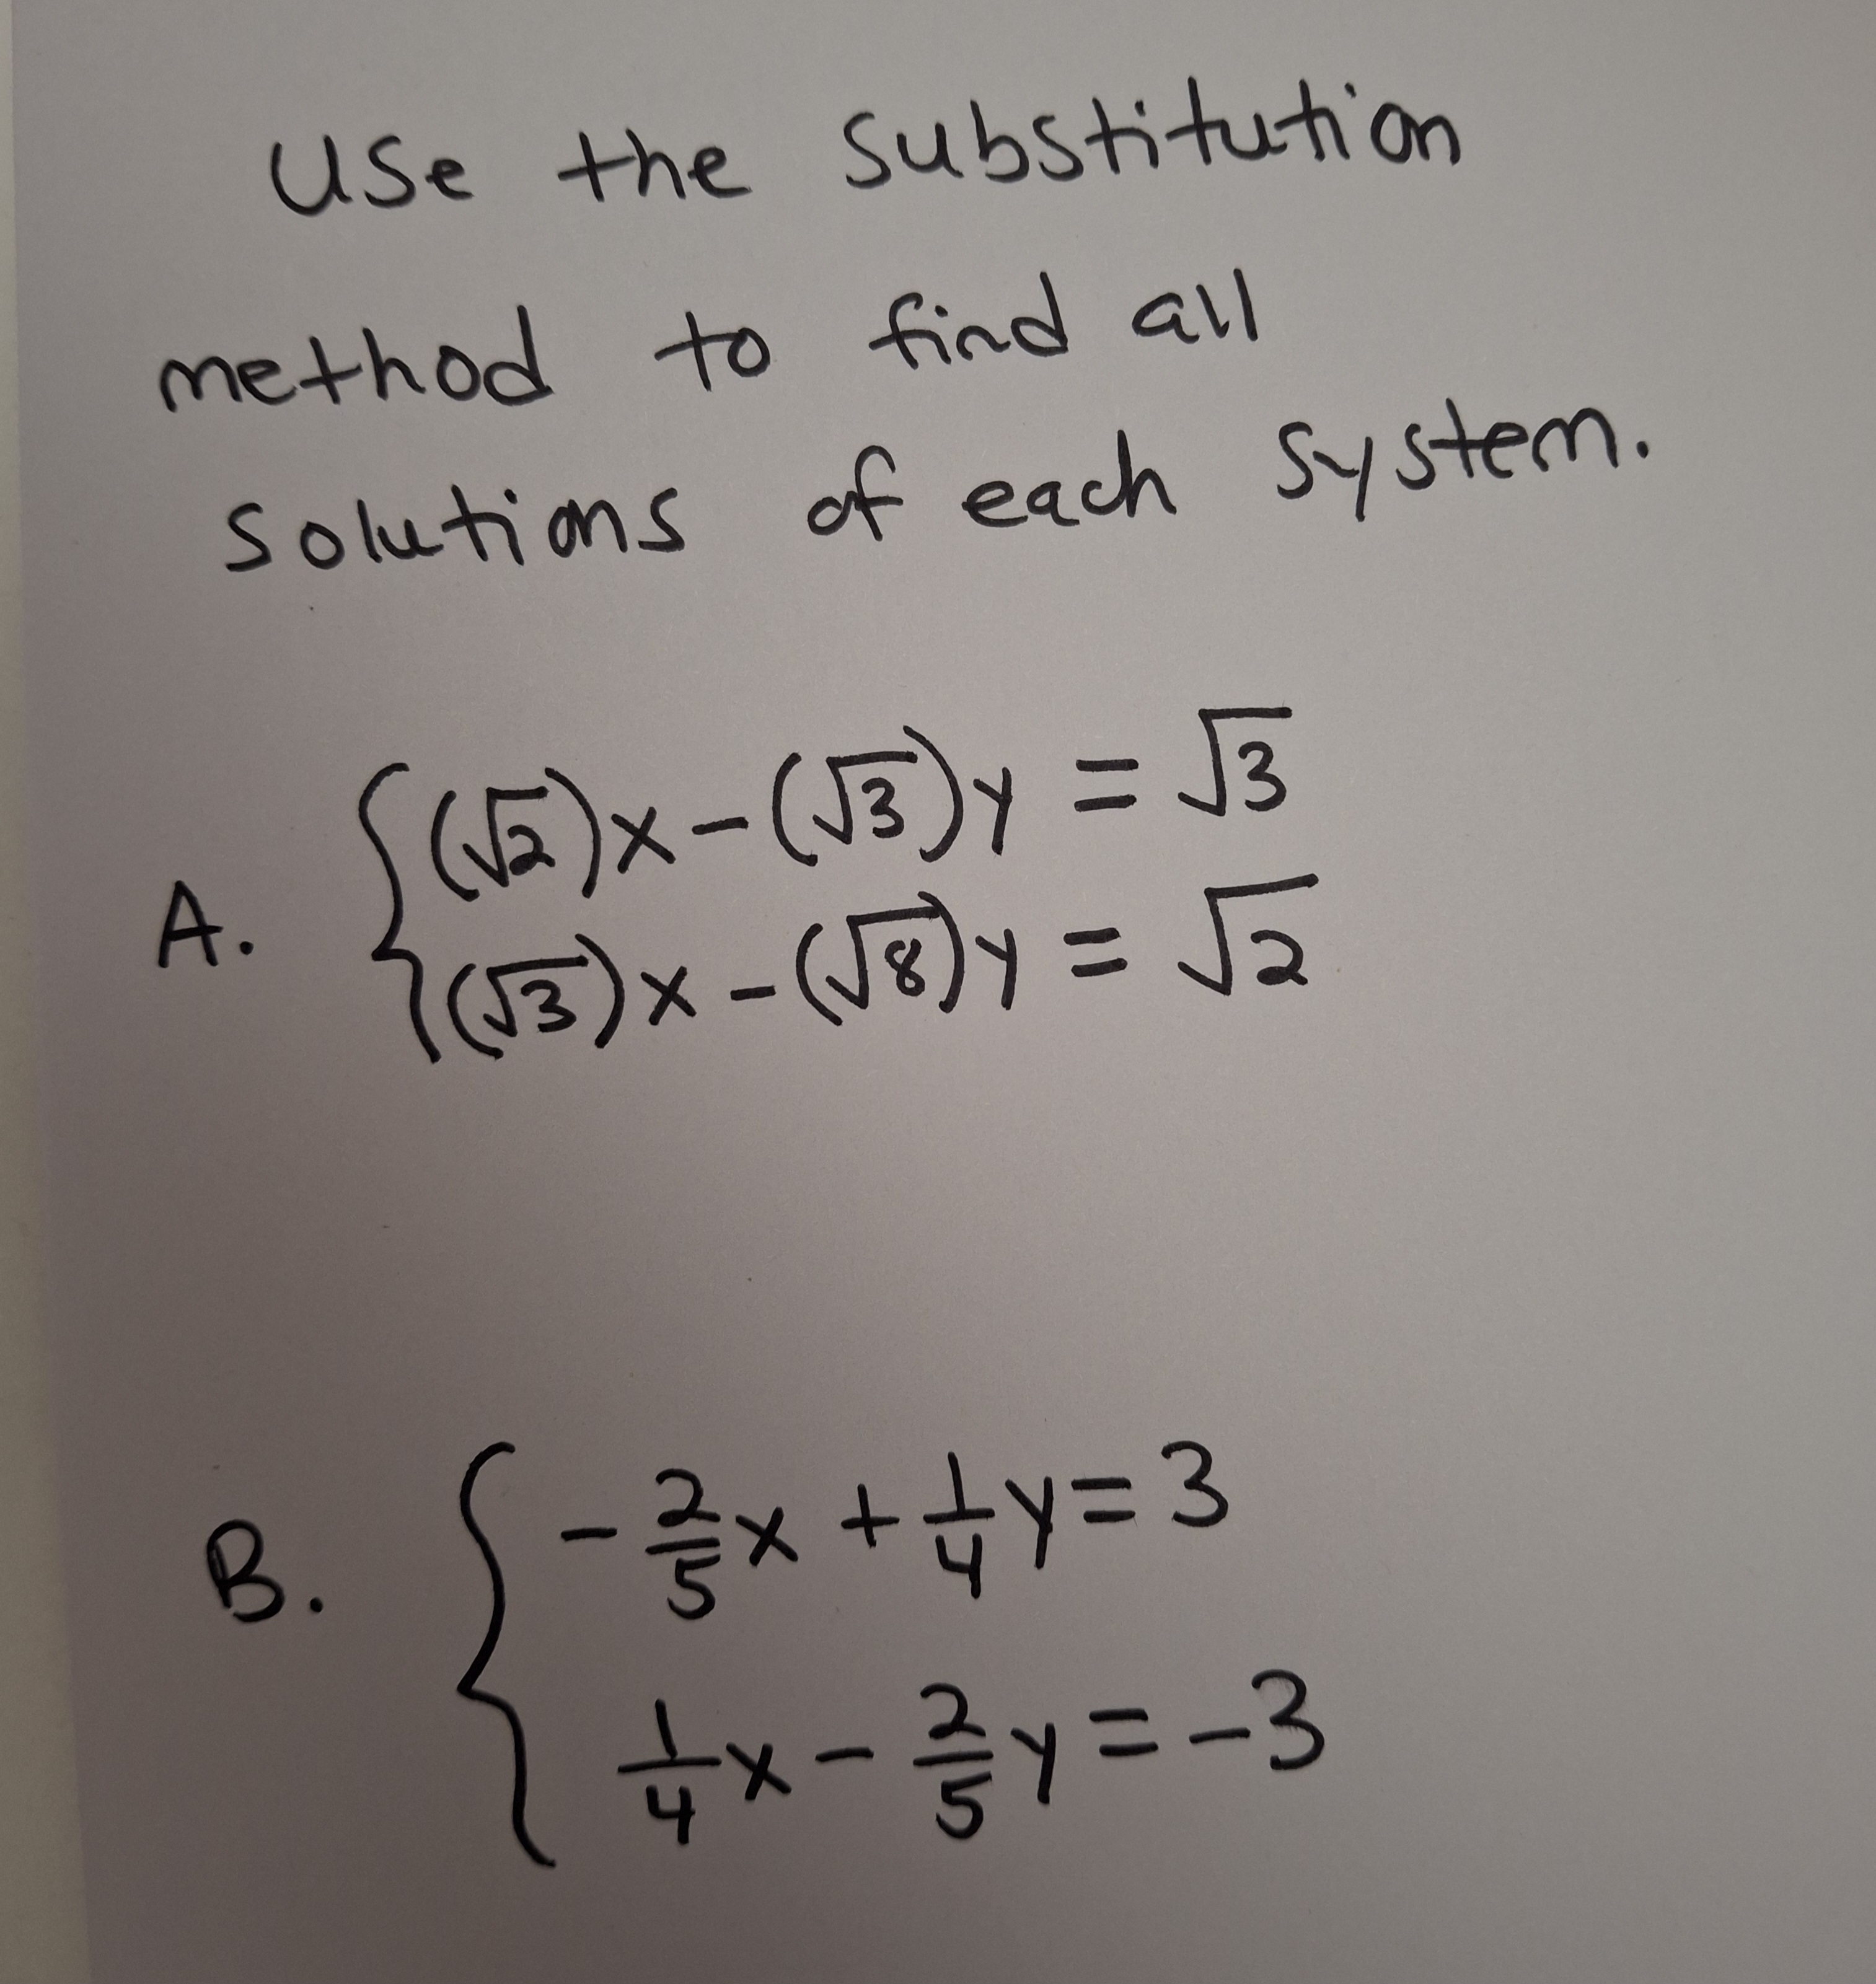 Use the substitution
method to find all
solutions of each system.
A. { (√2)x - (√3)y = √3
(√3)x - (√8)y = √2
B. { - 2/5 x + 1/4 y = 3
1/4 x - 2/5 y = -3